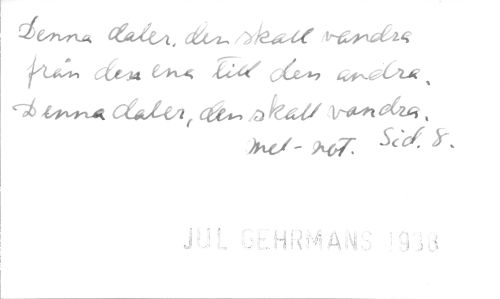 Denna daler, den skall vandra
från den ena till den andra.
Denna daler, den skall vandra.
mel-not. Sid. 8.
JUL GEHRMANS 1938